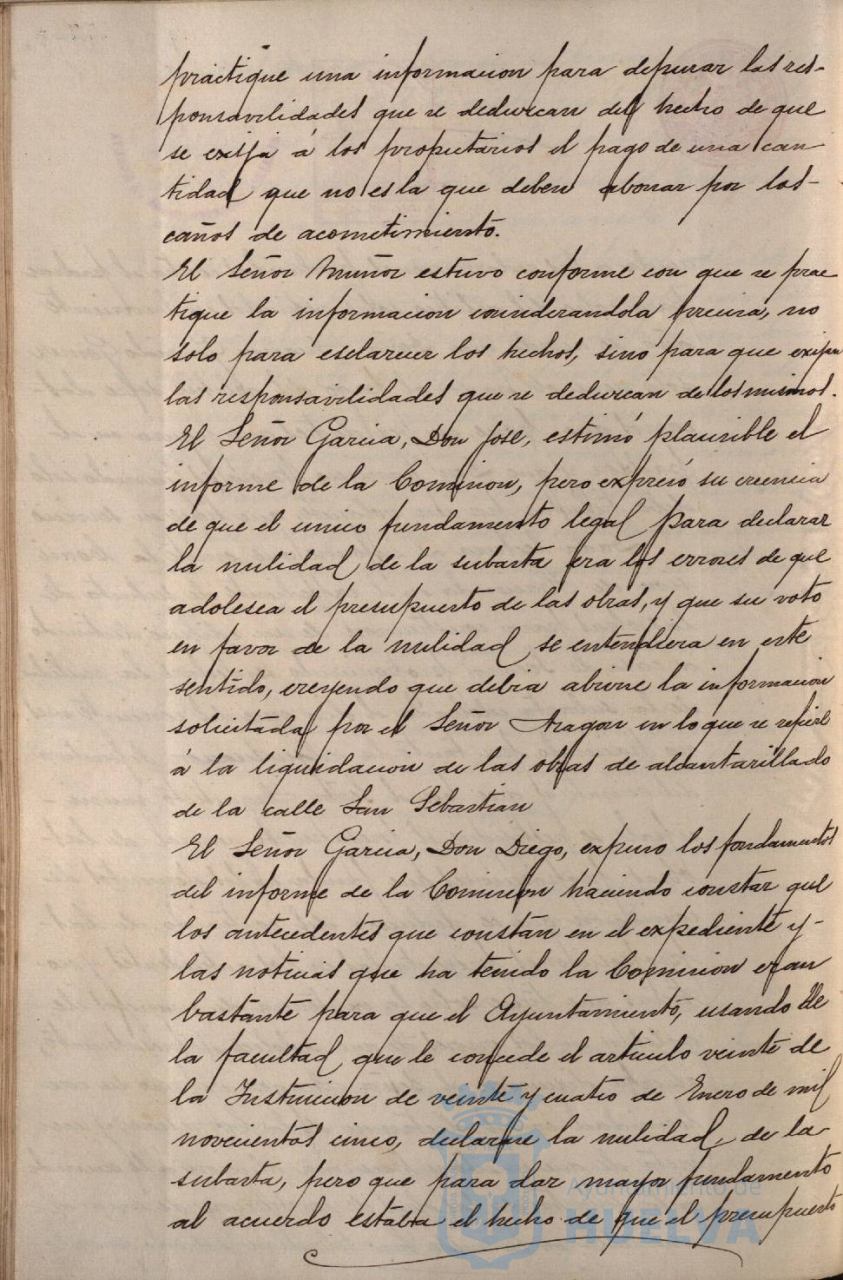 practique una informacion para depurar las res-
ponsavilidades que se deduzcan del hecho de que
se exija á los propietarios el pago de una can-
tidad que no es la que deben abonar por los-
caños de acometimiento.
El Señor Muñoz estuvo conforme con que se prac
tique la informacion considerandola precisa, no
solo para esclarecer los hechos, sino para que exijan
las responsavilidades que se deduzcan de los mismos.
El Señor Garcia, Don José, estimó plausible el
informe de la Comision, pero expresó su creencia
de que el unico fundamento legal para declarar
la nulidad de la subasta era los errores de que
adolesea el presupuesto de las obras, y que su voto
en favor de la nulidad se entendiera en este
sentido, creyendo que debia abrirse la informacion
solicitada por el Señor Aragon en lo que se refiere
á la liquidacion de las obras de alcantarillado
de la calle San Sebastian
El Señor Garcia, Don Diego, expuso los fondamentos
del informe de la Comision haciendo constar que
los antecedentes que constan en el expediente y-
las noticias que ha tenido la Comision eran
bastante para que el Ayuntamiento, usando de
la facultad que le concede el articulo veinte de
la Instruccion de veinte y cuatro de Enero de mil
novecientos cinco, declarase la nulidad de la
subasta, pero que para dar mayor fundamento
al acuerdo estaba el hecho de que el presupuesto
Ayuntamiento de
HUELVA